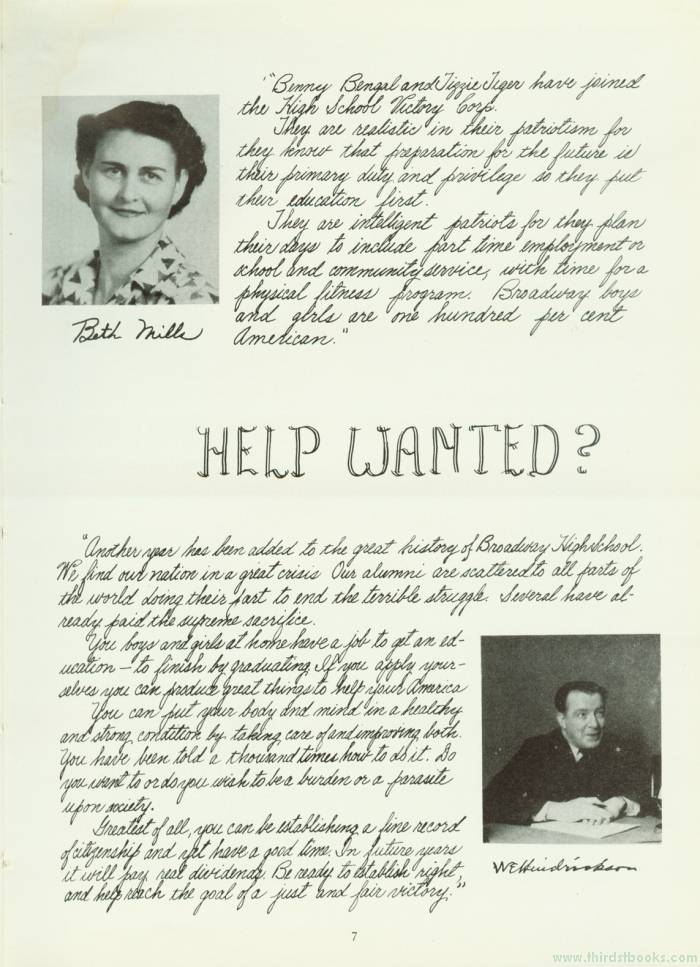 "Benny Bengal and Tizzie Tiger have joined
the High School Victory Corp.
They are realistic in their patriotism for
they know that preparation for the future is
their primary duty and privilege so they put
their education first.
They are intelligent patriots for they plan
their days to include part time employment or
school and community service, with time for a
physical fitness program. Broadway boys
and girls are one hundred per cent
American."
Beth Mills
HELP WANTED?
"Another year has been added to the great history of Broadway High School.
We find our nation in a great crisis Our alumni are scattered to all parts of
the world doing their part to end the terrible struggle. Several have al-
ready paid the supreme sacrifice.
You boys and girls at home have a job to get an ed-
ucation — to finish by graduating. If you apply your-
selves you can produce great things to help your America
You can put your body and mind in a healthy
and strong condition by taking care of and improving both.
You have been told a thousand times how to do it. Do
you want to or do you wish to be a burden or a parasite
upon society.
Greatest of all, you can be establishing a fine record
of citizenship and yet have a good time. In future years
it will pay real dividends. Be ready to establish right,
and help reach the goal of a just and fair victory."
WE Hindrickson
7
www.thirdstbooks.com